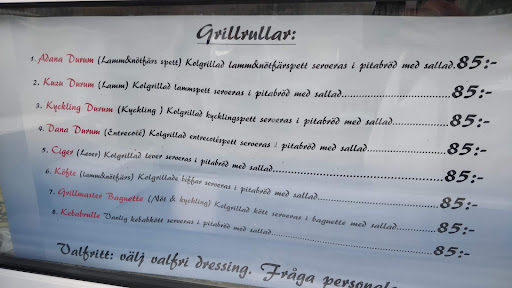 Grillrullar:
1. Adana Durum (Lamm&nötfärs spett) Kolgrillad lamm&nötfärspett serveras i pitabröd med sallad.85:-
2. Kuzu Durum (Lamm) Kolgrillad lammspett serveras i pitabröd med sallad...........................85:-
3. Kyckling Durum (Kyckling ) Kolgrillad kycklingspett serveras i pitabröd med sallad................85:-
4. Dana Durum (Entrecoté) Kolgrillad entrecotéspett serveras i pitabröd med sallad................85:-
5. Ciger (Lever) Kolgrillad lever serveras i pitabröd med sallad...........................................85:-
6. Köfte (lamm&nötfärs) Kolgrillade biffar serveras i pitabröd med sallad...............................85:-
7. Grillmaster Baguette (/Nöt & kyckling) Kolgrillad kött serveras i baguette med sallad............85:-
8. Kebabrulle Vanlig kebabkött serveras i pitabröd med sallad............................................85:-
Valfritt: välj valfri dressing. Fråga